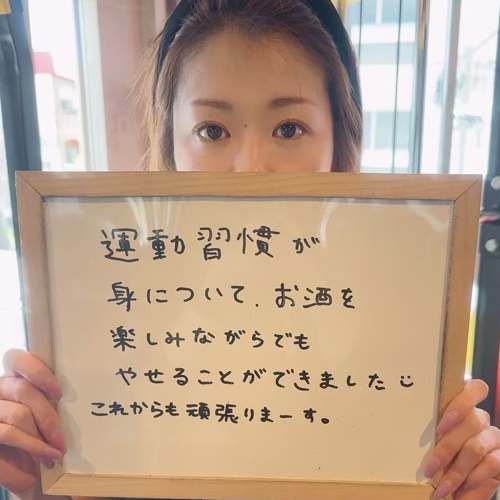 運動習慣が
身について、お酒を
楽しみながらでも
やせることができました
これからも頑張りまーす。